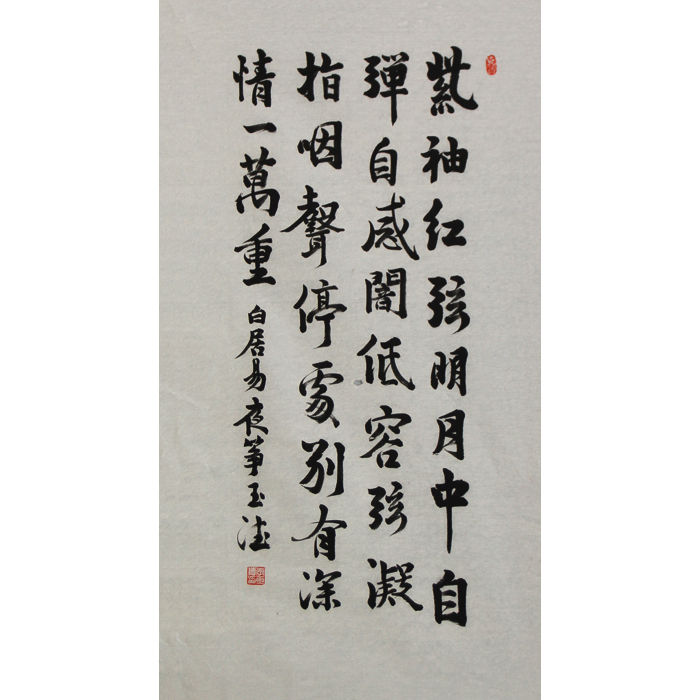 紫袖红弦明月中自
彈自感闇低容弦凝
指咽聲停處别有深
情一萬重 白居易夜筝 玉